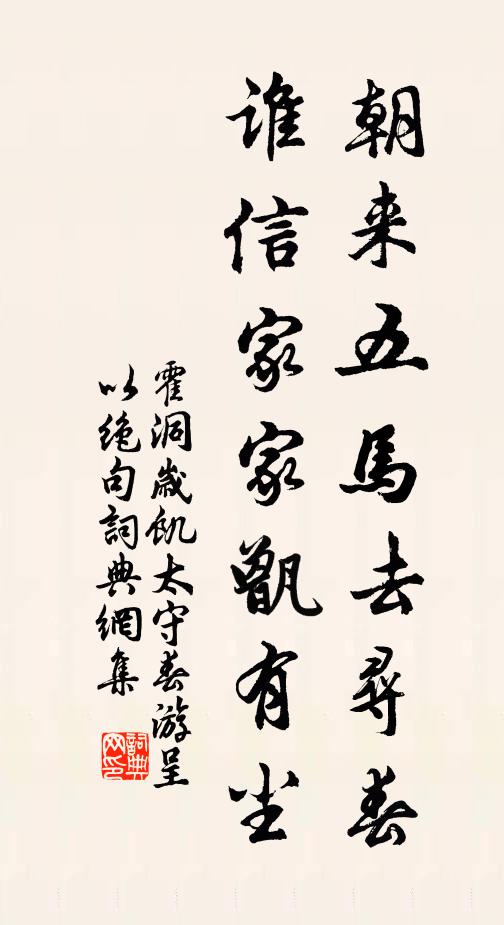 朝来五馬去尋春
谁信家家甑有尘
霍洞歲飢太守春游呈
以绝句詞典網集
詞典
网印